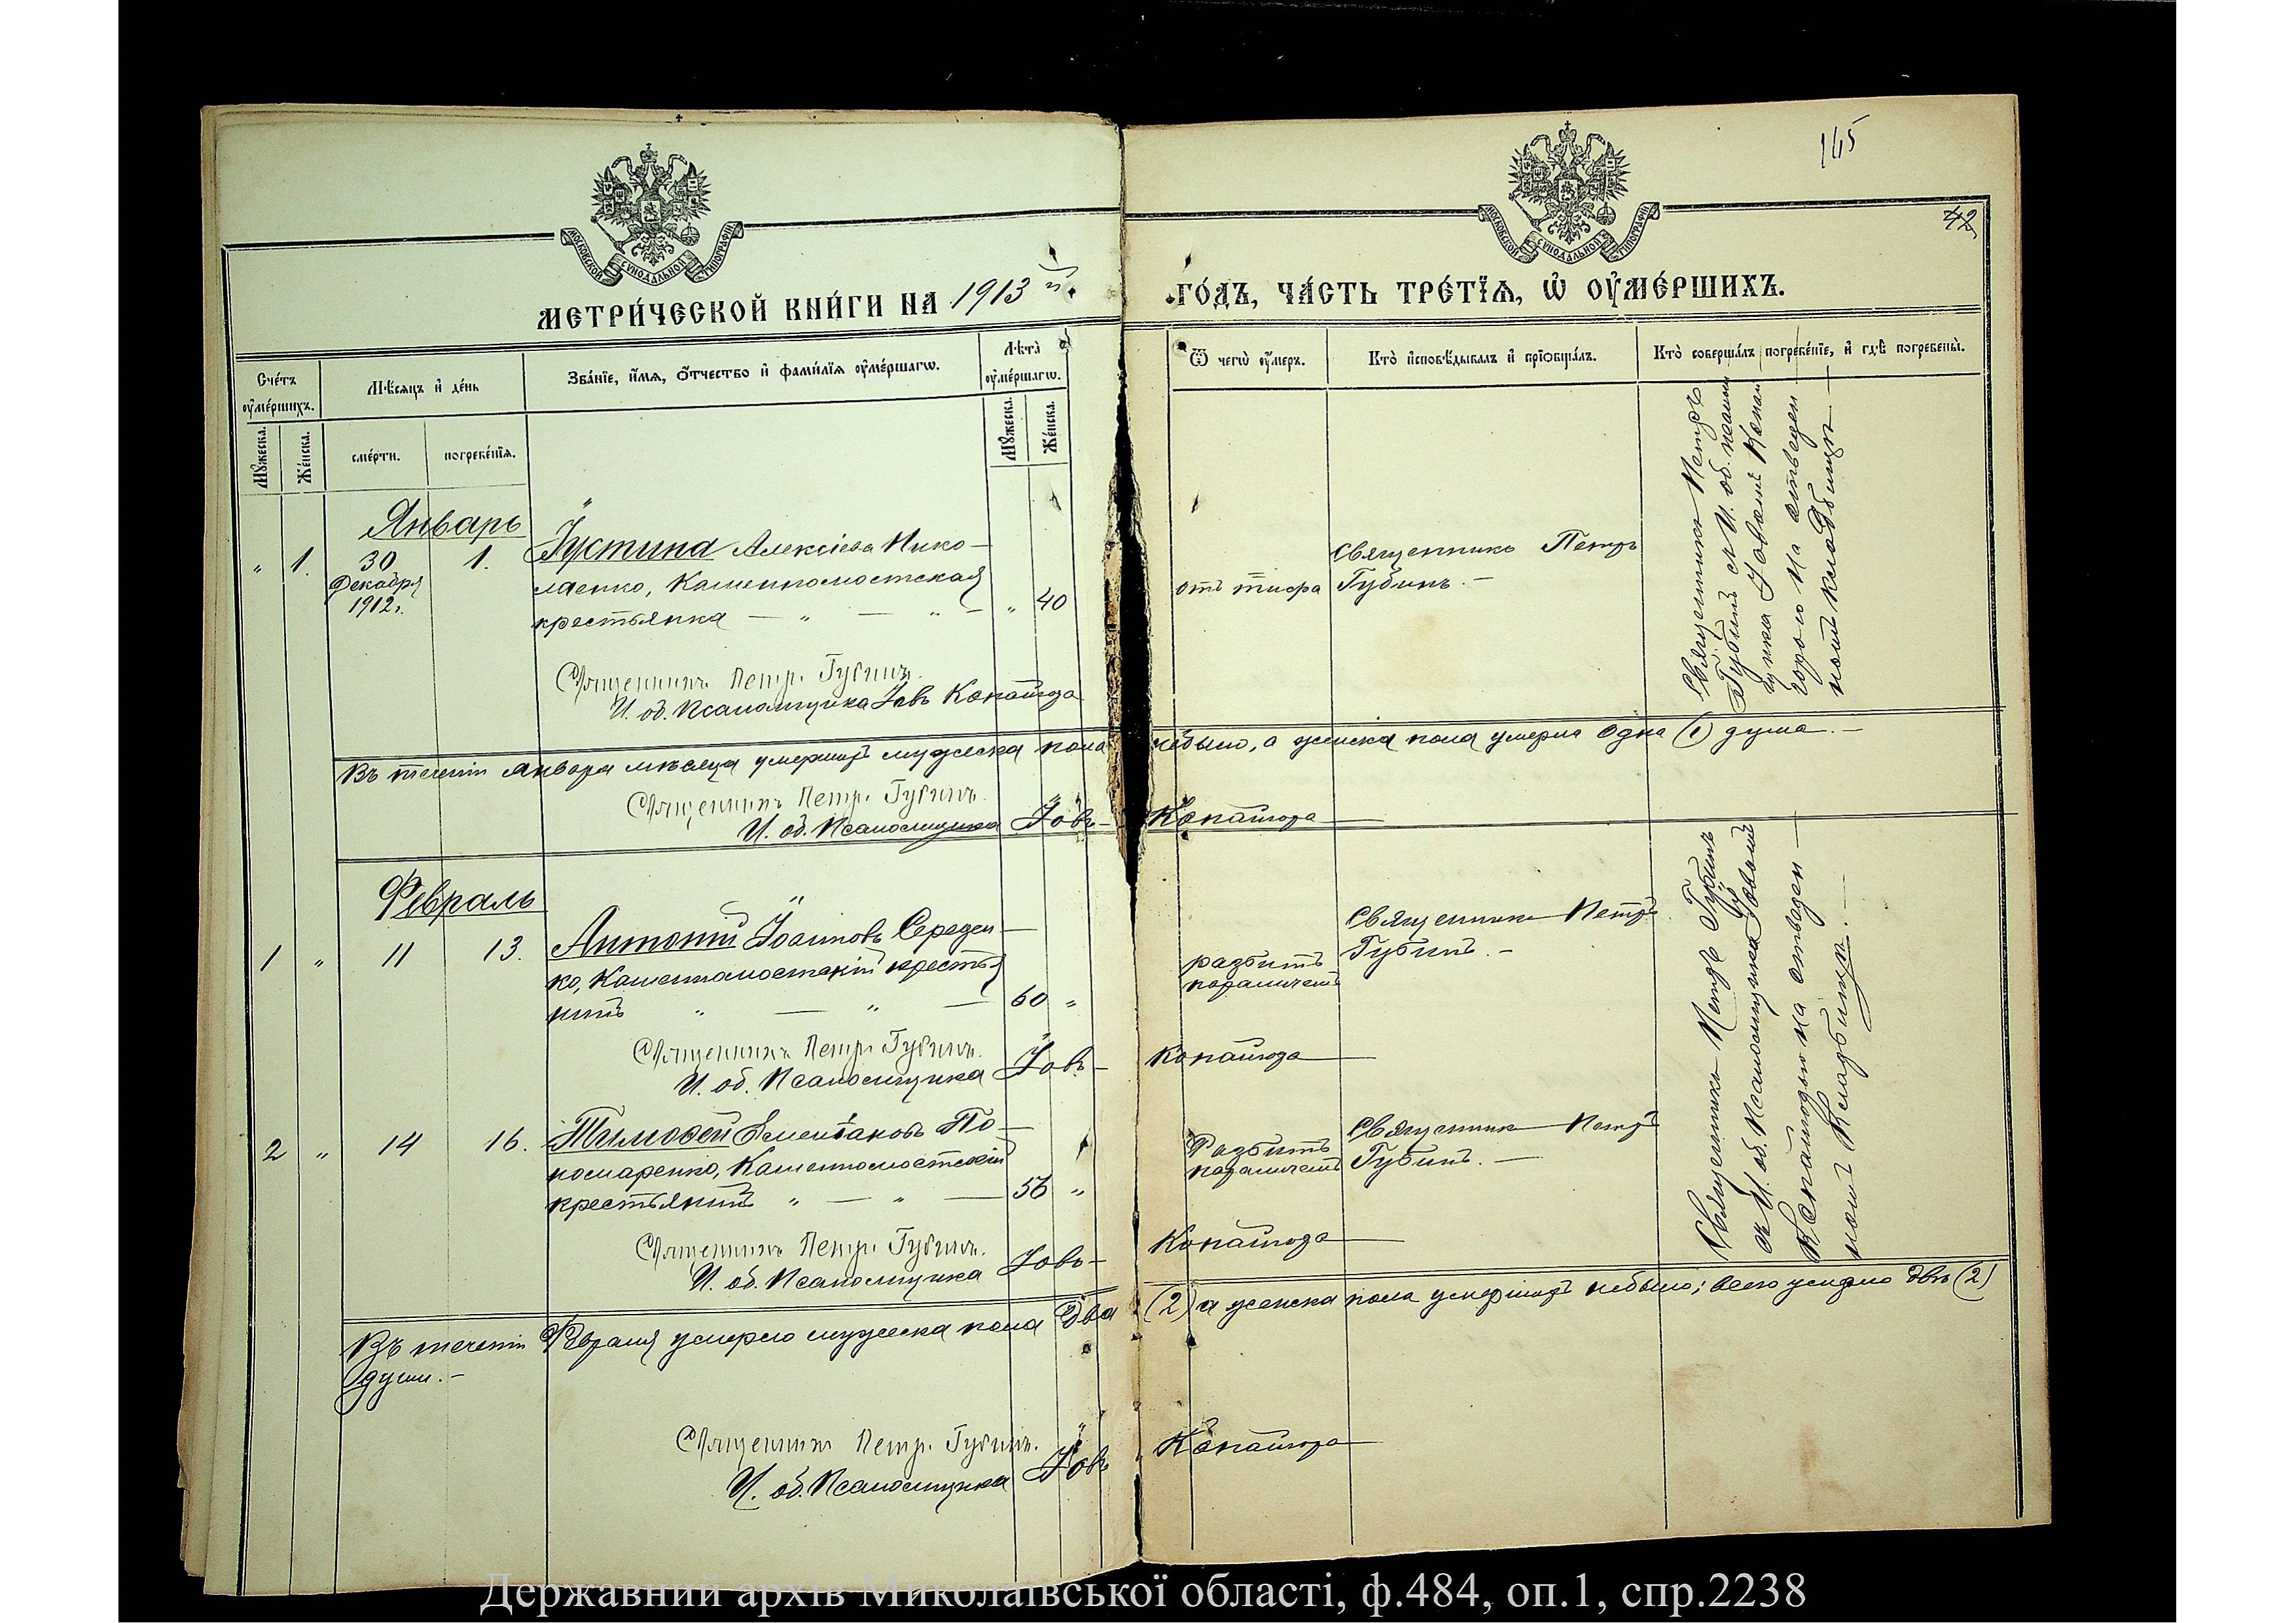 165
42
МОСКОВСКОЙ СѴНОДАЛЬНОЙ ТИПОГРАФІИ
МОСКОВСКОЙ СѴНОДАЛЬНОЙ ТИПОГРАФІИ
МЕТРИ́ЧЕСКОЙ КНИ́ГИ НА 1913 й. ГО́ДЪ, ЧА́СТЬ ТРЕ́ТЇѦ, Ѡ҆ ОУ҆МЕ́РШИХЪ.
Сче́тъ оу҆ме́ршихъ.
Мꙋ́жеска.
Же́нска.
Мѣ́сяцъ и҆ де́нь
сме́рти.
погребе́нїѧ.
Зва́нїе, и҆́мѧ, ѻ҆́тчество и҆ фами́лїѧ оу҆ме́ршагѡ.
Лѣ́та̀ оу҆ме́ршагѡ.
Мꙋ́жеска.
Же́нска.
Ѿ чегѡ̀ оу҆́меръ.
Кто̀ и҆сповѣ́дывалъ и҆ прїѡбща́лъ.
Кто̀ соверша́лъ погребе́нїе, и҆ гдѣ̀ погребены̀.
Январь
" 1. 30 Декабря 1912 г. 1.
Іустина Алексіева Нико-
лаенко, Каменномостская
крестьянка — " — " — " 40
отъ тифа
Священникъ Петръ
Губинъ.—
Священникъ Петръ
Губинъ съ И. об. псалом
щика Іовомъ Копай
городо на отведен
номъ кладбищѣ —
Священникъ Петр. Губинъ.
И. об. Псаломщика Іовъ Копайгода
Въ теченіи Января мѣсяца умершихъ мужеска пола небыло, а женска пола умерла Одна (1) душа.—
Священникъ Петр. Губинъ.
И. об. Псаломщика Іовъ— Копайгода—
Февраль
1 " 11 13.
Антоній Іоанновъ Середен-
ко, Каменномостскій крестья-
нинъ " — " — 60 "
разбитъ
параличемъ
Священникъ Петръ
Губинъ.—
Священникъ Петръ Губинъ
съ И. об. Псаломщика Іовомъ
Копайгодою на отведен—
номъ Кладбищѣ.—
Священникъ Петр. Губинъ.
И. об. Псаломщика Іовъ— Копайгода—
2 " 14 16.
Тимофей Емеліановъ По-
номаренко, Каменномостскій
крестьянинъ " — " — 56 "
Разбитъ
параличемъ
Священникъ Петръ
Губинъ.—
Священникъ Петр. Губинъ.
И. об. Псаломщика Іовъ— Копайгода—
Въ теченіи Февраля умерло мужеска пола Два (2) а женска пола умершихъ небыло; всего умерло двѣ (2)
души.—
Священникъ Петр. Губинъ.
И. об. Псаломщика Іовъ Копайгода—
Державний архів Миколаївської області, ф.484, оп.1, спр.2238